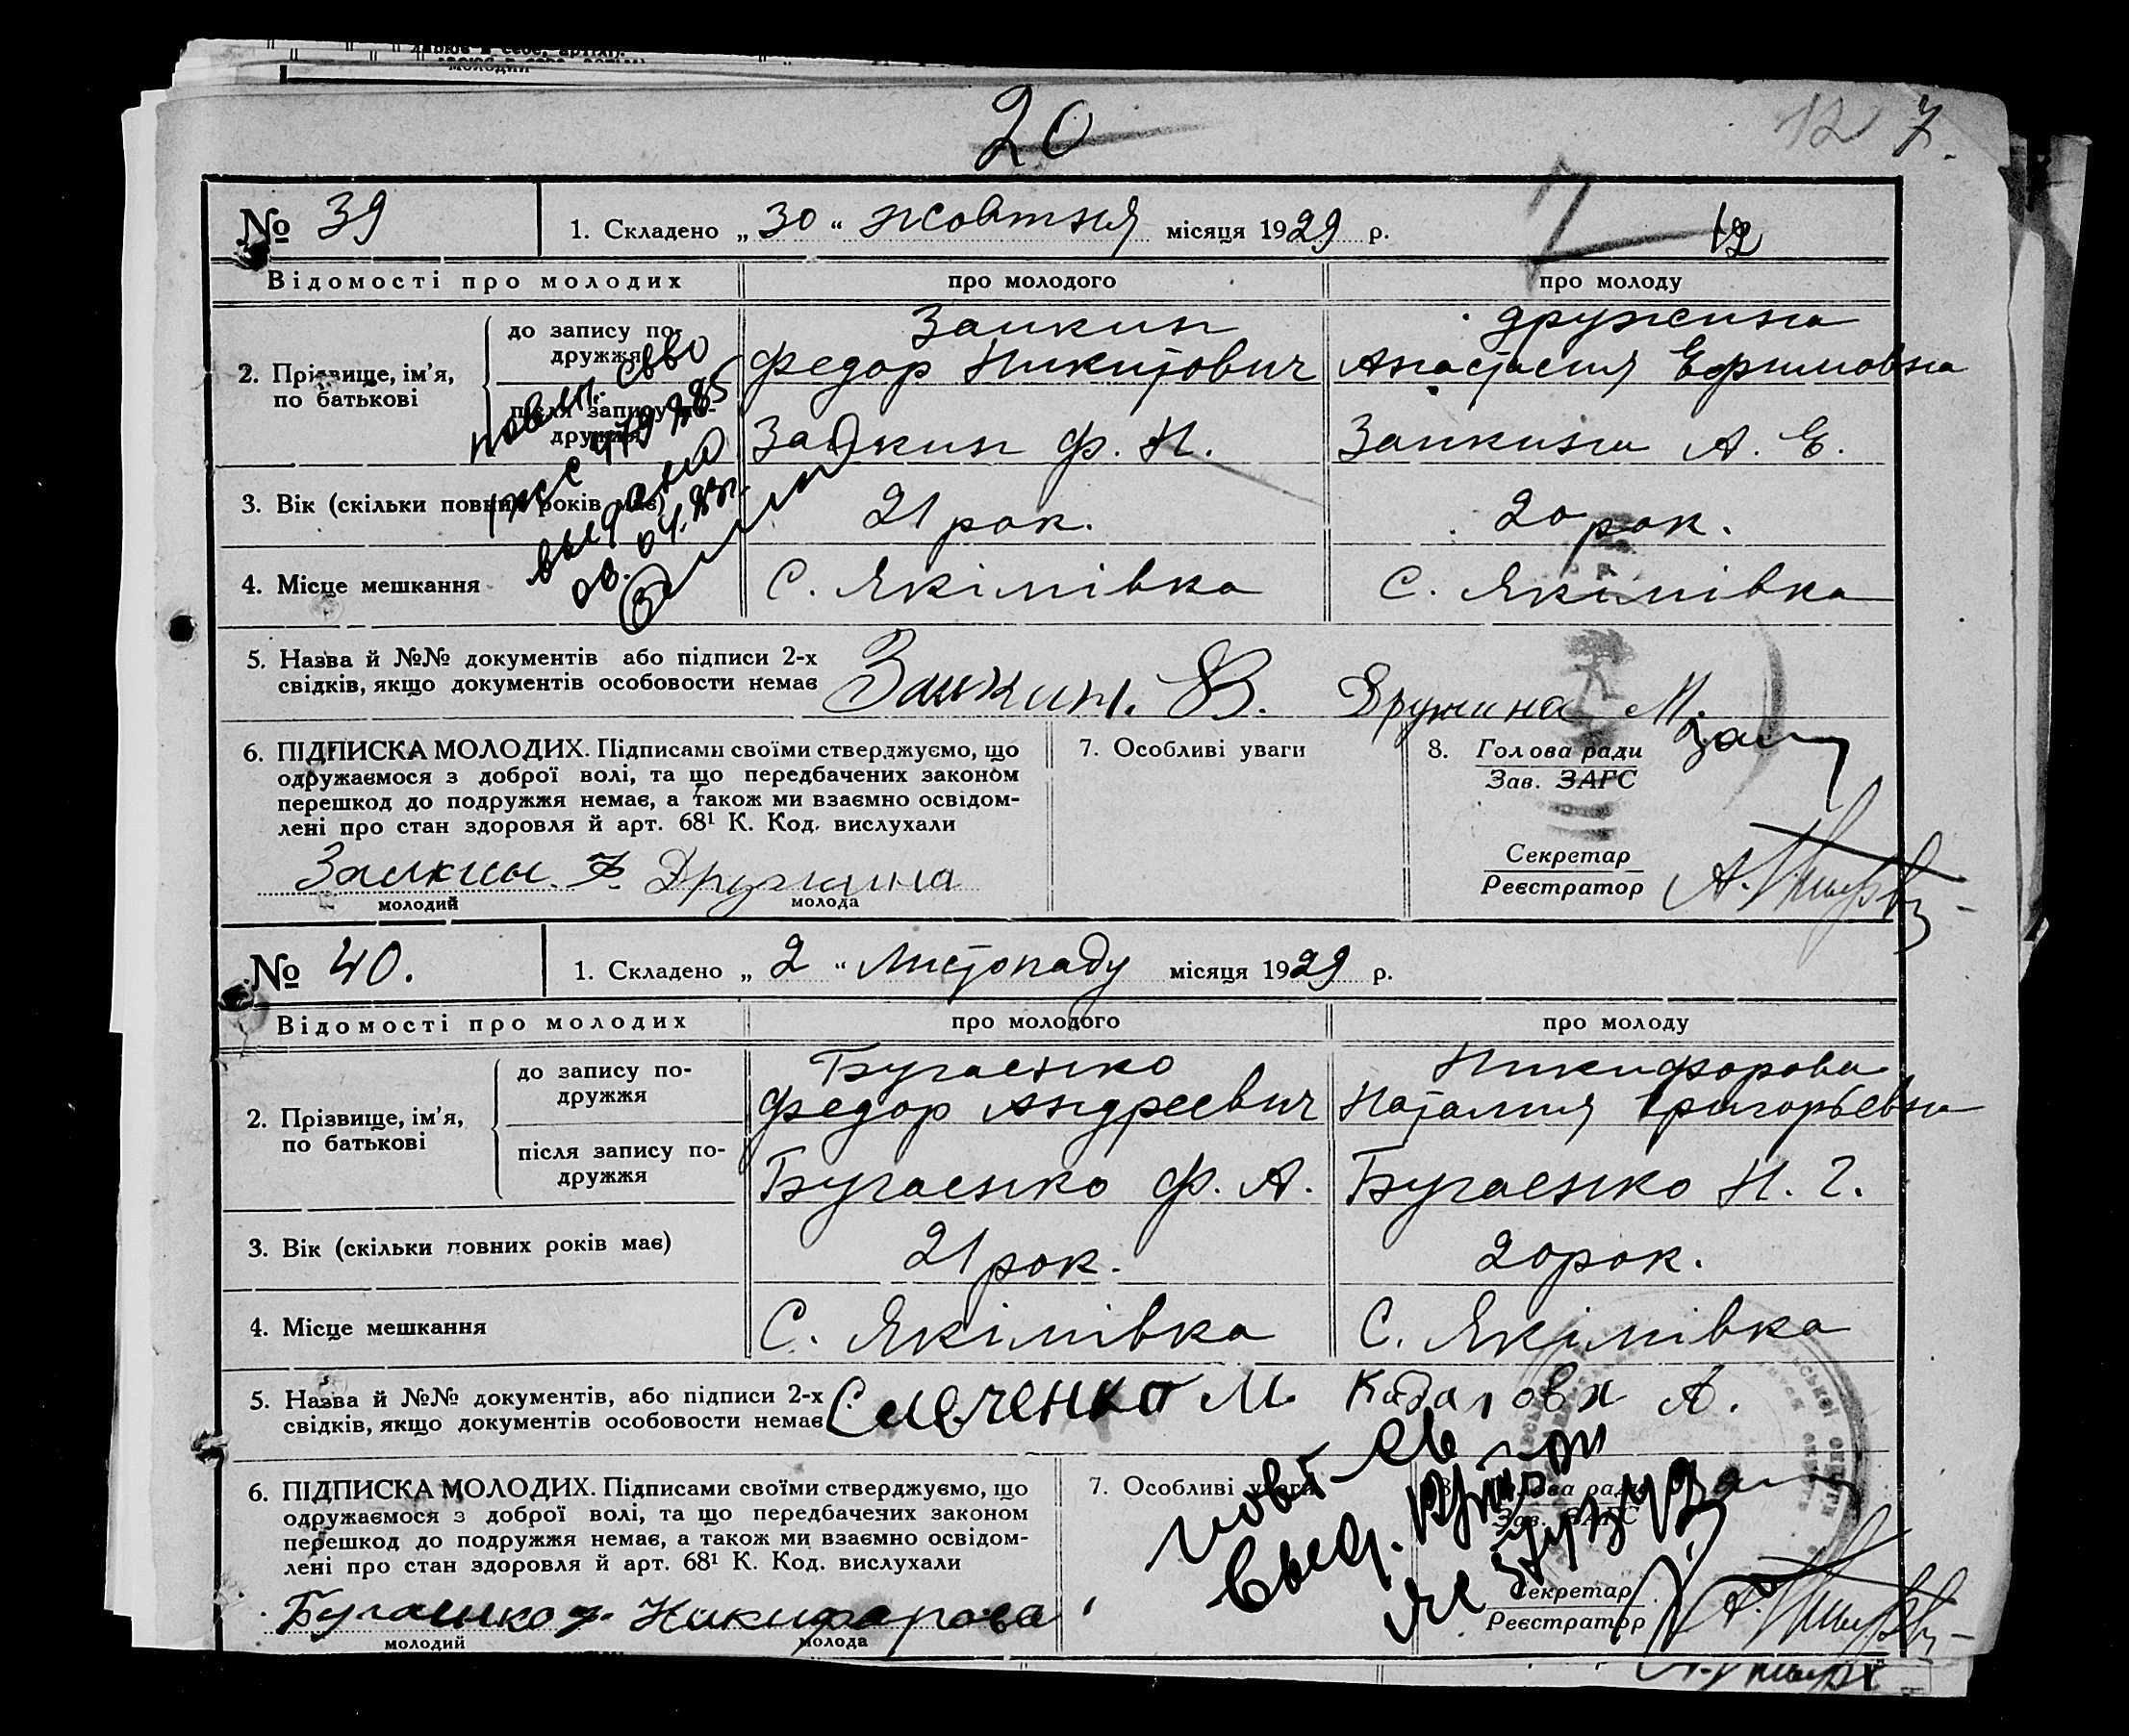 20
12 7.
№ 39
1. Складено „ 30 “ жовтня місяця 1929 р.
7 12
Відомості про молодих
про молодого
про молоду
2. Прізвище, ім’я, по батькові
до запису подружжя
Заикин
Федор Никитович
Дружина
Анастасия Ефимовна
після запису подружжя
Заикин Ф. Н.
Заикина А. Е.
3. Вік (скільки повних років має)
21 рок.
20 рок.
4. Місце мешкання
С. Якімівка
С. Якімівка
повт. св во
выдано
5. Назва й №№ документів або підписи 2-х
свідків, якщо документів особовости немає
Заикин. В. Дружина М.
6. ПІДПИСКА МОЛОДИХ. Підписами своїми стверджуємо, що
одружаємося з доброї волі, та що передбачених законом
перешкод до подружжя немає, а також ми взаємно освідом-
лені про стан здоровля й арт. 68¹ К. Код. вислухали
Заикин. Ф. Дружина
молодий молода
7. Особливі уваги
8. Голова ради
Зав. ЗАГС
Секретар
Реєстратор
№ 40.
1. Складено „ 2 “ Листопаду місяця 1929 р.
Відомості про молодих
про молодого
про молоду
2. Прізвище, ім’я, по батькові
до запису по-
дружжя
Бугаенко
Федор Андреевич
Никифорова
Наталия Григорьевна
після запису по-
дружжя
Бугаенко Ф. А.
Бугаенко Н. Г.
3. Вік (скільки повних років має)
21 рок.
20 рок.
4. Місце мешкання
С. Якімівка
С. Якімівка
5. Назва й №№ документів, або підписи 2-х
свідків, якщо документів особовости немає
М. А.
6. ПІДПИСКА МОЛОДИХ. Підписами своїми стверджуємо, що
одружаємося з доброї волі, та що передбачених законом
перешкод до подружжя немає, а також ми взаємно освідом-
лені про стан здоровля й арт. 68¹ К. Код. вислухали
Бугаенко Ф. Никифарова
молодий молода
7. Особливі уваги
повт св
выд.
8. Голова ради
Зав. ЗАГС
Секретар
Реєстратор